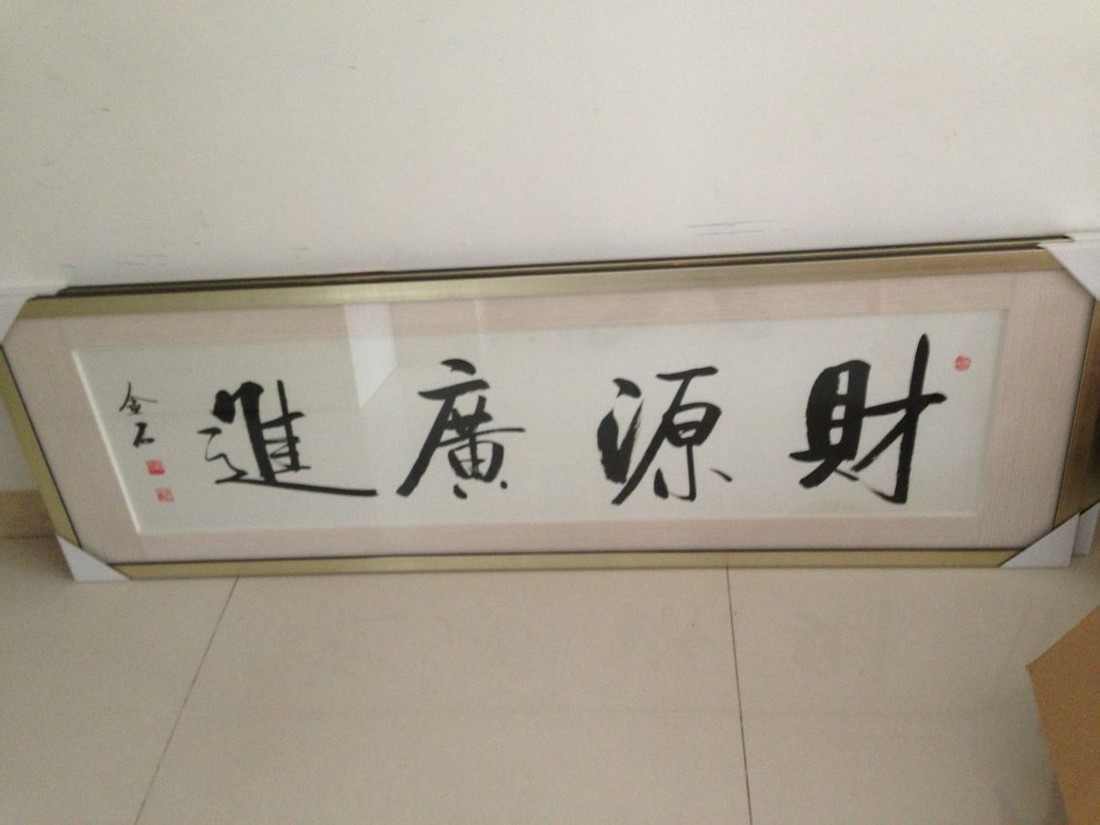 財源廣進
金石